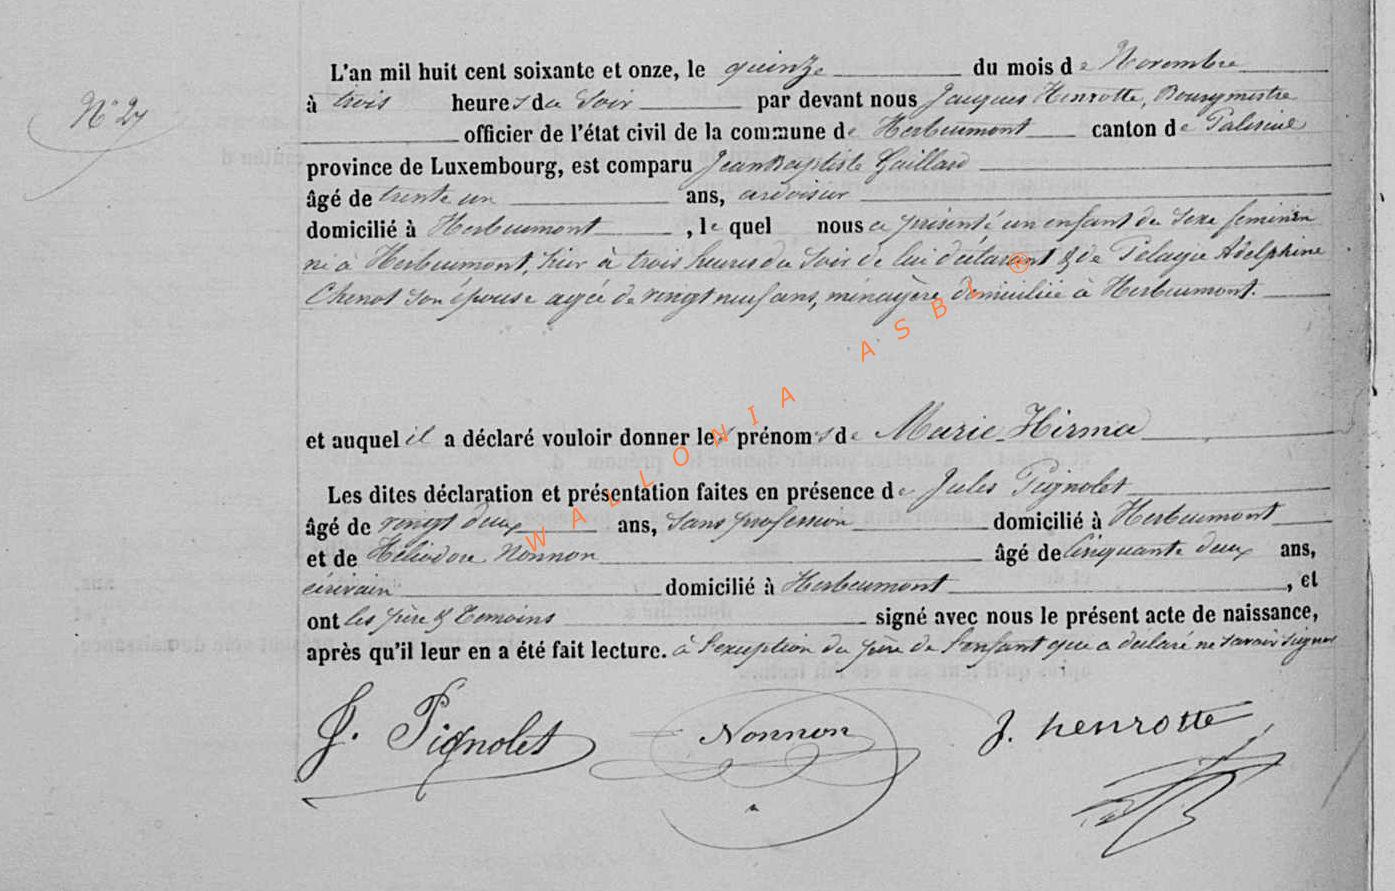 N° 27
L'an mil huit cent soixante et onze, le quinze du mois de Novembre
à trois heures du Soir par devant nous Jacques Henrotte, Bourgmestre
officier de l'état civil de la commune de Herbeumont canton de Paliseul
province de Luxembourg, est comparu Jean Baptiste Gaillard
âgé de trente un ans, ardoisier
domicilié à Herbeumont, le quel nous a présenté un enfant du Sexe féminin
né à Herbeumont, hier à trois heures du Soir de lui déclarant & de Pelagie Adelphine
Chenot son épouse agée de vingt neuf ans, ménagère, domiciliée à Herbeumont.
et auquel il a déclaré vouloir donner les prénoms de Marie Hirma
Les dites déclaration et présentation faites en présence de Jules Pignolet
âgé de vingt deux ans, Sans profession domicilié à Herbeumont
et de Héliodore Nonnon âgé de Cinquante deux ans,
écrivain domicilié à Herbeumont, et
ont les père & Temoins signé avec nous le présent acte de naissance,
après qu'il leur en a été fait lecture. à l'exception du père de l'enfant qui a déclaré ne savoir signer
J. Pignolet Nonnon J. henrotte
WALLONIA ASBL ®